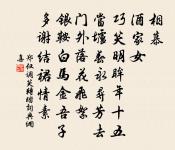 相慕
酒家女
巧笑明眸年十五
當壚春永尋芳去
門外落花飛絮
銀鞍白馬金吾子
多謝結裙情素
鄭僅調笑轉踏詞典網